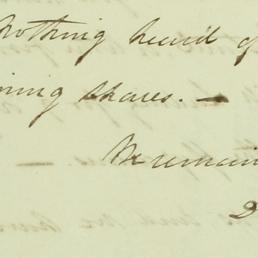 Nothing heard of
ning shares. —
We remain